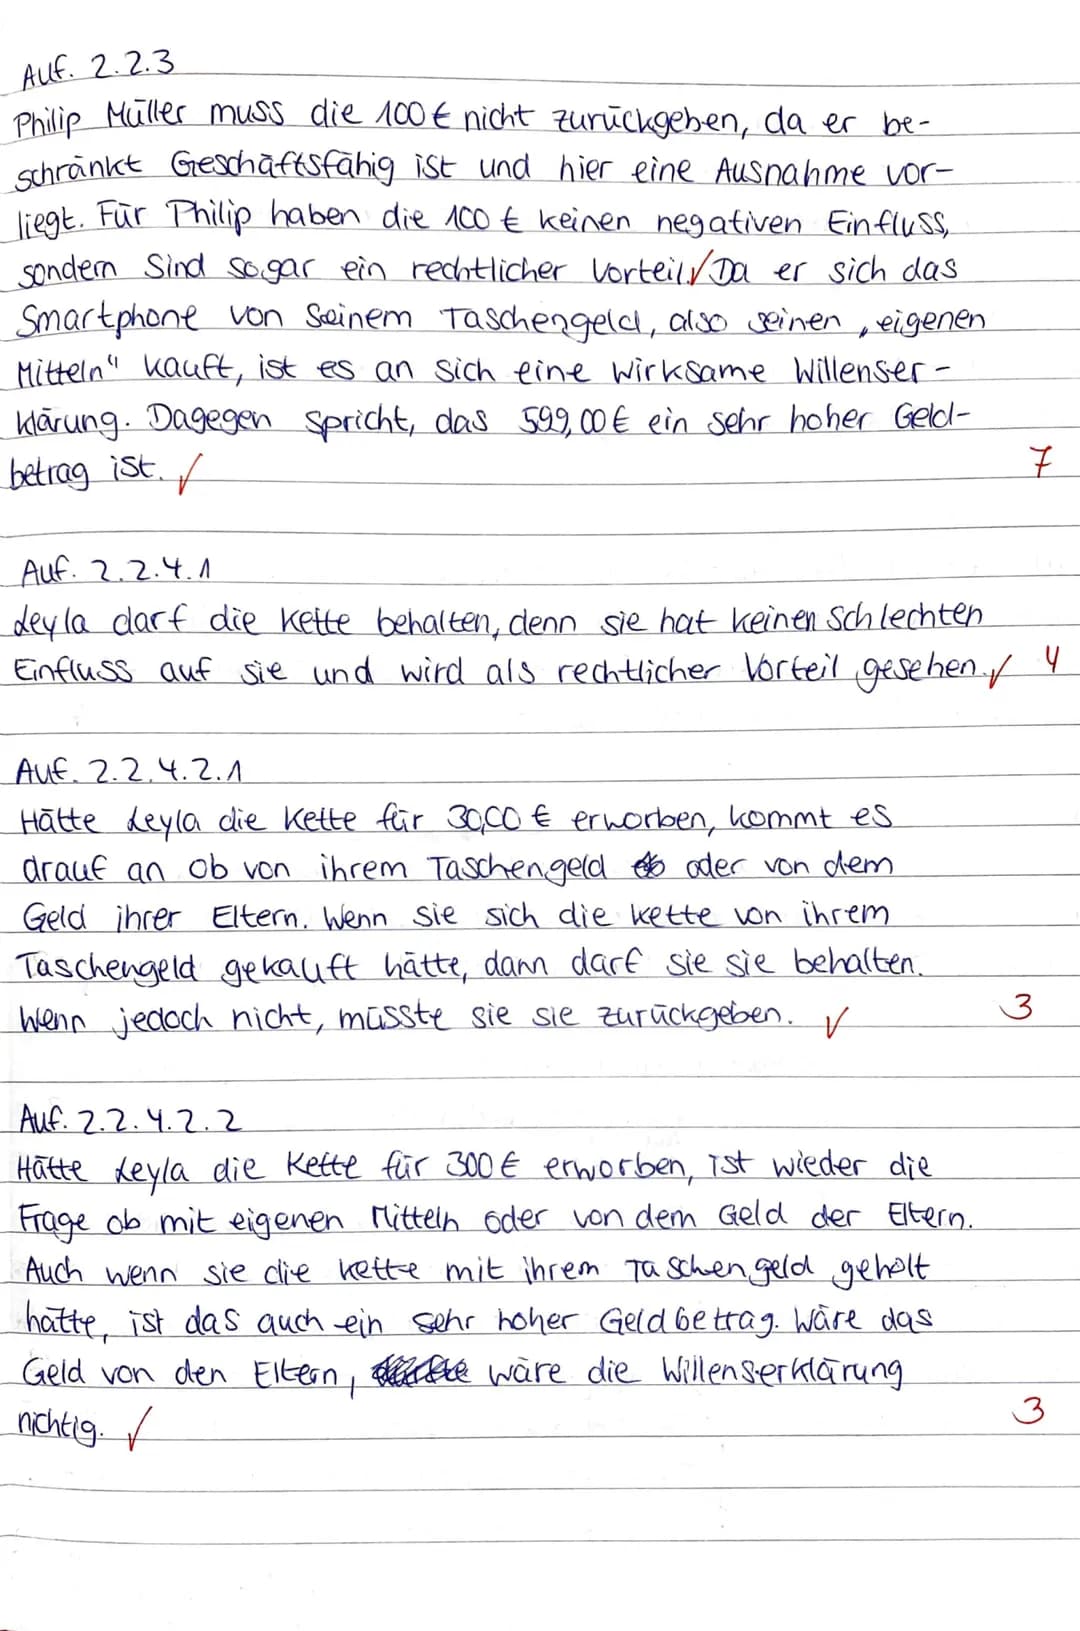 Auf. 2.2.3
Philip Müller muss die 100 € nicht zurückgeben, da er be-
schränkt Geschäftsfähig ist und hier eine Ausnahme vor-
liegt. Für Philip haben die 100 € keinen negativen Einfluss,
sondern Sind sogar ein rechtlicher Vorteil.✓ Da er sich das
Smartphone von Seinem Taschengeld, also seinen „eigenen
Mitteln" kauft, ist es an sich eine wirksame Willenser-
klärung. Dagegen spricht, das 599,00 € ein sehr hoher Geld-
betrag ist. ✓ 7
Auf. 2.2.4.1
Leyla darf die Kette behalten, denn sie hat keinen Schlechten
Einfluss auf sie und wird als rechtlicher Vorteil gesehen.✓ 4
Auf. 2.2.4.2.1
Hätte Leyla die Kette für 30,00 € erworben, kommt es
drauf an ob von ihrem Taschengeld oder von dem
Geld ihrer Eltern. Wenn sie sich die Kette von ihrem
Taschengeld gekauft hätte, dann darf sie sie behalten.
Wenn jedoch nicht, müsste sie sie zurückgeben. ✓ 3
Auf. 2.2.4.2.2
Hätte Leyla die Kette für 300 € erworben, ist wieder die
Frage ob mit eigenen Mitteln oder von dem Geld der Eltern.
Auch wenn sie die Kette mit ihrem Taschengeld geholt
hätte, ist das auch ein sehr hoher Geldbetrag. Wäre das
Geld von den Eltern, wäre die Willenserklärung
nichtig. ✓ 3